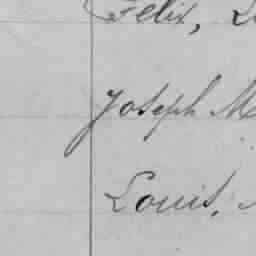 Felix, L
Joseph M
Louis,